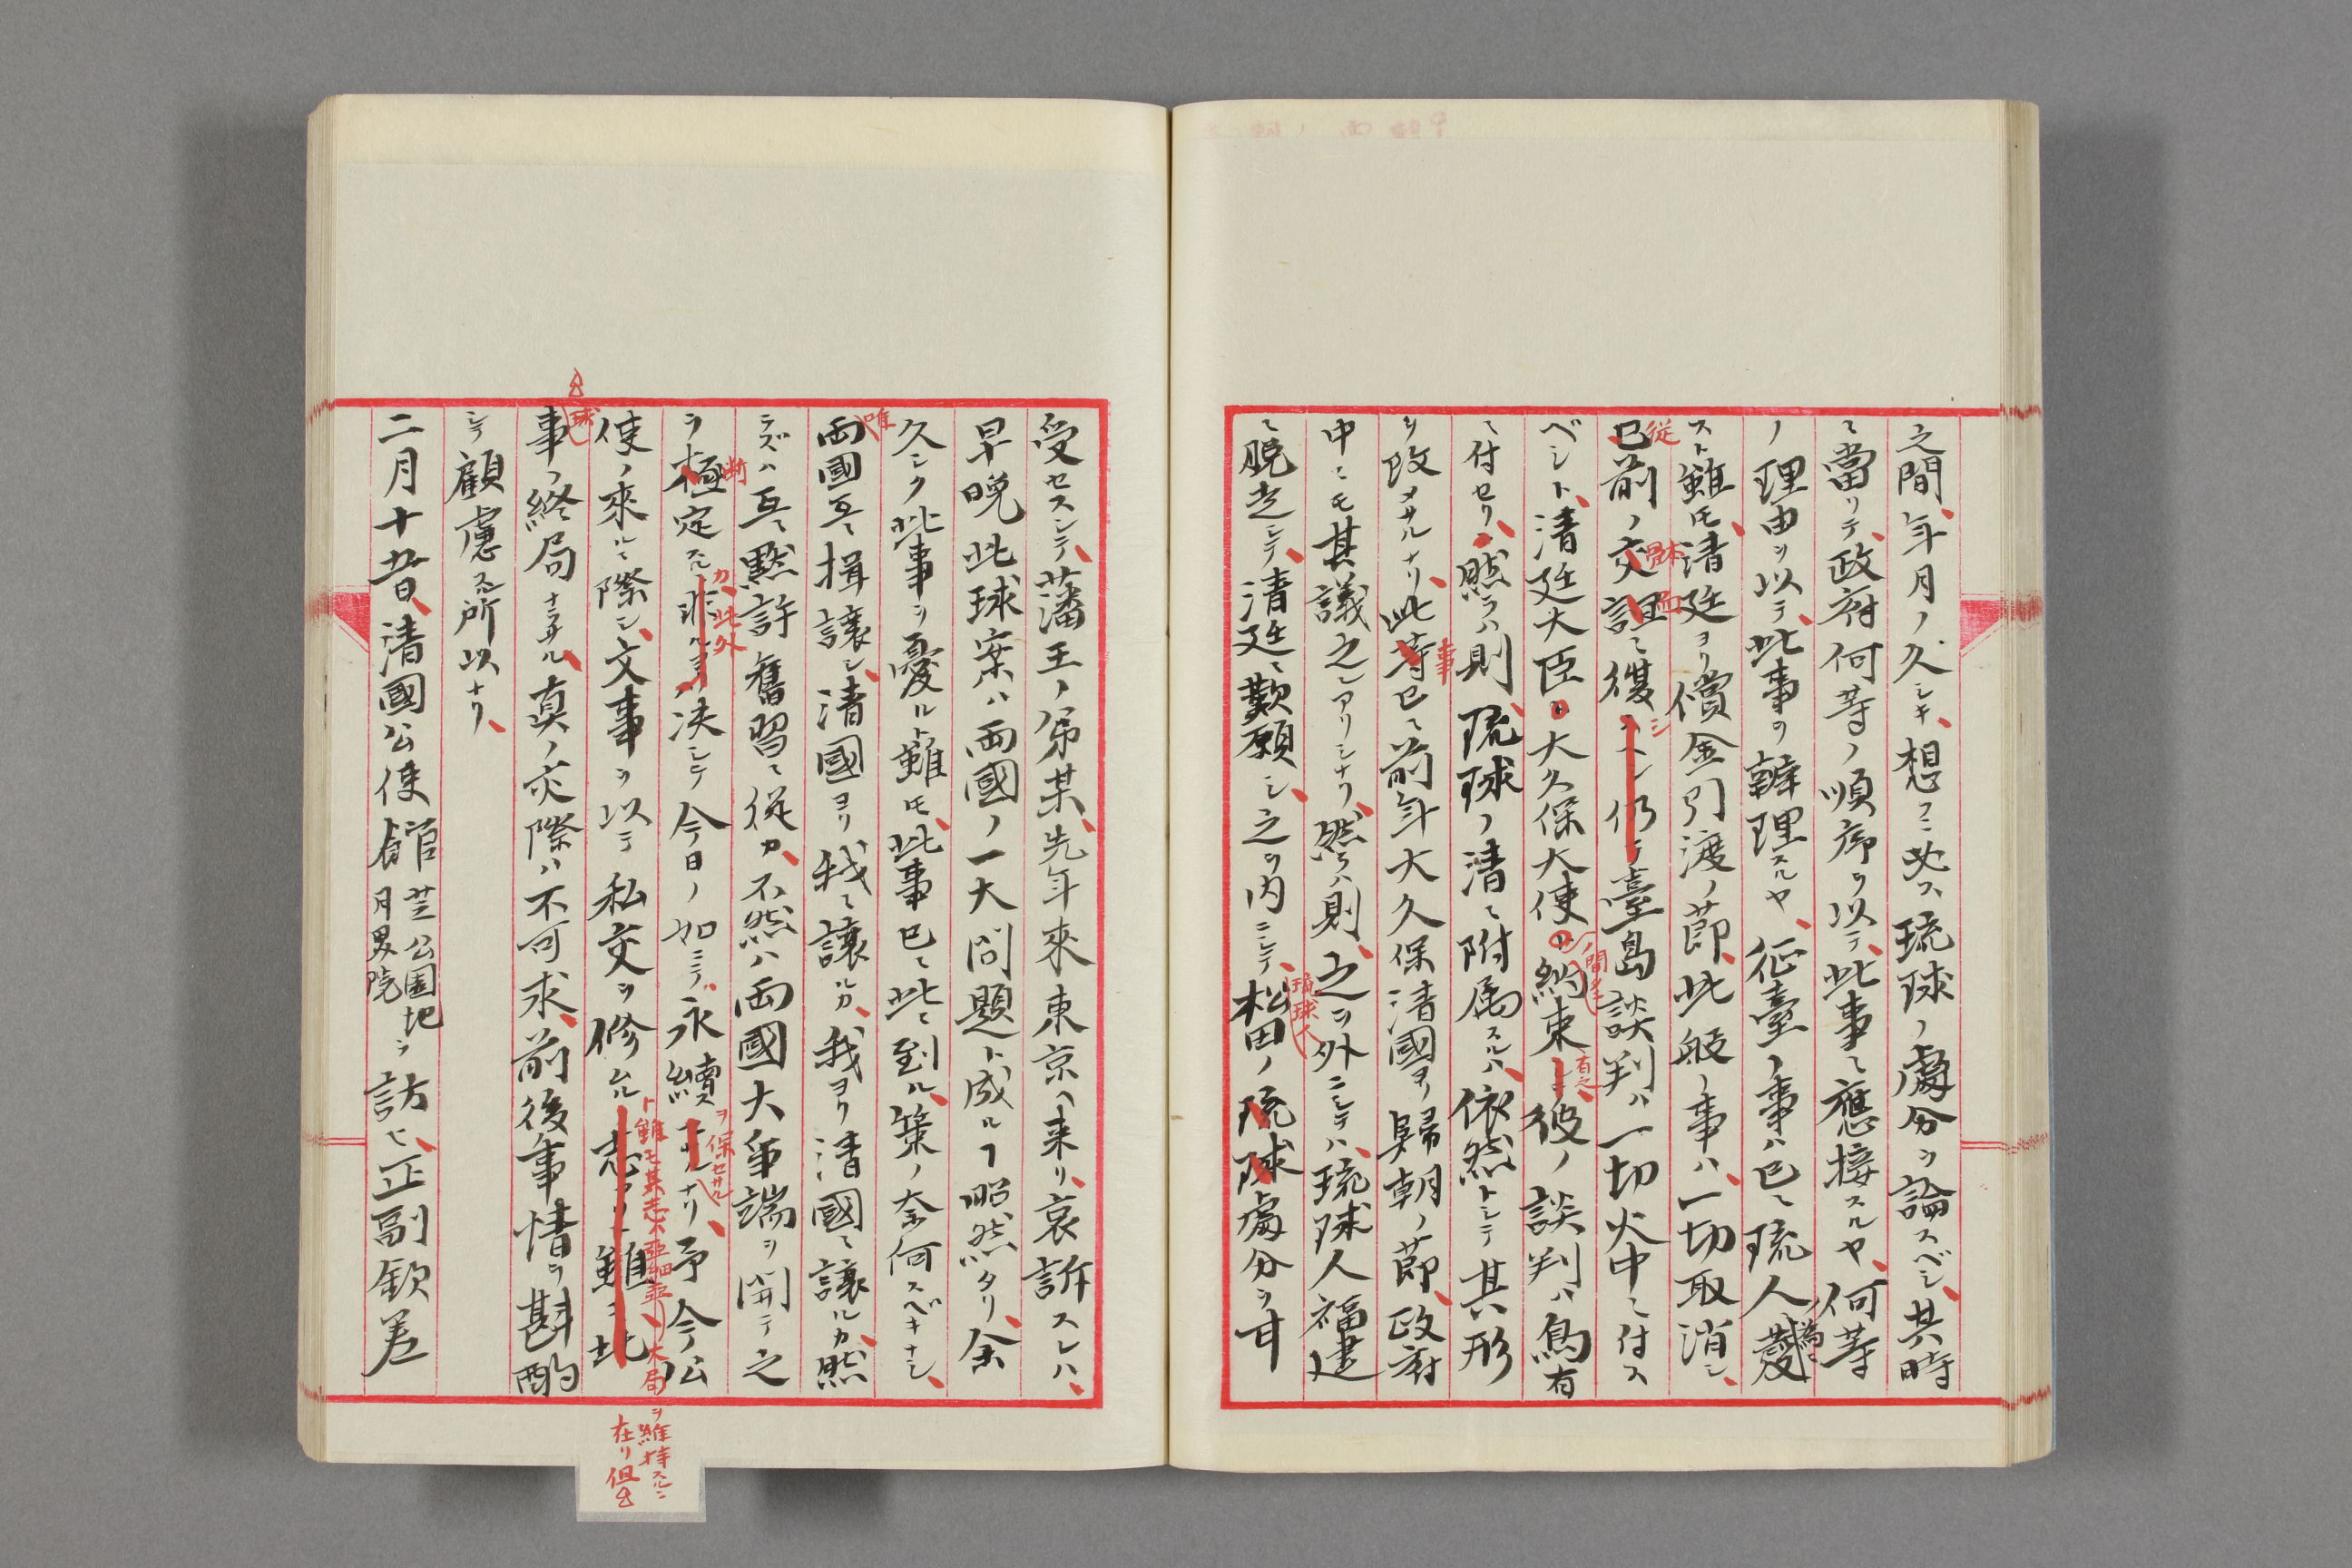 之間、年月ノ久シキ、想フニ必ス琉球ノ處分ヲ論スベシ、其時
ニ當リテ、政府何等ノ順序ヲ以テ、此事ニ應接スルヤ、何等
ノ理由ヲ以テ、此事ヲ辨理スルヤ、征臺ノ事ハ已ニ琉人ノ為ニ
スト雖モ、清廷ヨリ償金引渡ノ節、此般ノ事ハ、一切取消シ、
從
已前ノ交
本
面
ニ復
シ
仍テ臺島談判ハ一切火中ニ付ス
ベシト、清廷大臣ヨ大久保大使ノ約束
ノ間ニ
有之、
彼ノ談判ハ烏有
ニ付セリ、然ラハ則、琉球ノ清ニ附属スルハ、依然トシテ其形
ヲ改メサルナリ、此等
事
已ニ前年大久保清國ヨリ歸朝ノ節、政府
中ニモ其議之レアリシナリ、然ラハ則、之ヲ外ニシテハ、琉球人福建
ニ脱走シテ、清廷ニ歎願シ、之ヲ内ニシテ、松田ノ琉球處分ヲ甘
琉球人
受セスシテ、藩王ノ弟某、先年來東京ヘ来リ、哀訴スレハ、
早晩此球案ハ両國ノ一大問題ト成ルヿ昭然タリ、余
久シク此事ヲ憂ルト雖モ、此事已ニ此ニ到ル、策ノ奈何スベキナシ、
唯
両國互ニ揖讓シ、清國ヨリ我ニ讓ルカ、我ヨリ清國ニ讓ルカ、然
ラズハ互ニ黙許舊習ニ從カ、不然ハ両國大事端ヲ開テ之
ヲ極定スルニ非ルヨリハ決シテ今日ノ如ニテ永續
断
カ、此外
ヲ保セサル
ナリ、予今公
使ノ來ルニ際シ、文事ヲ以テ私交ヲ修ムル志アリト雖ニ此
ト雖モ其志ハ亞細亞ノ大局
ヲ維持スルニ
在リ但
球
事ノ終局ナラサル、真ノ交際ハ不可求、前後事情ヲ斟酌
シテ顧慮スル所以ナリ、
二月十廿日、清國公使館芝公園地月界院ヲ訪ヒ、正副欽差